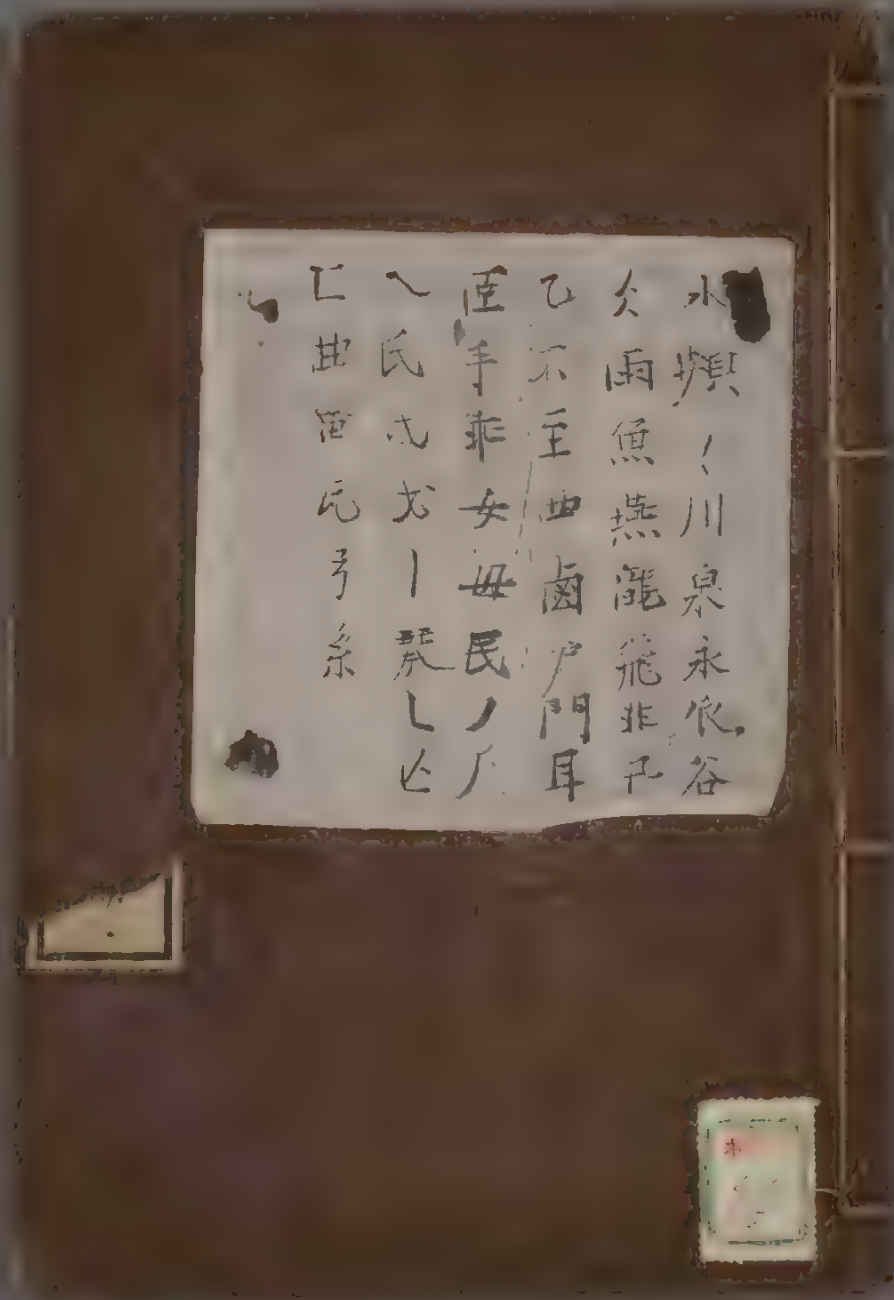 水頻〈川泉永𠂢谷
仌雨魚燕龍飛非卂
乙不至西鹵戶門耳
𦣞手𠦬女毋民丿𠂆
乁氏戈戉亅琴乚亡
匚曲甾瓦弓系